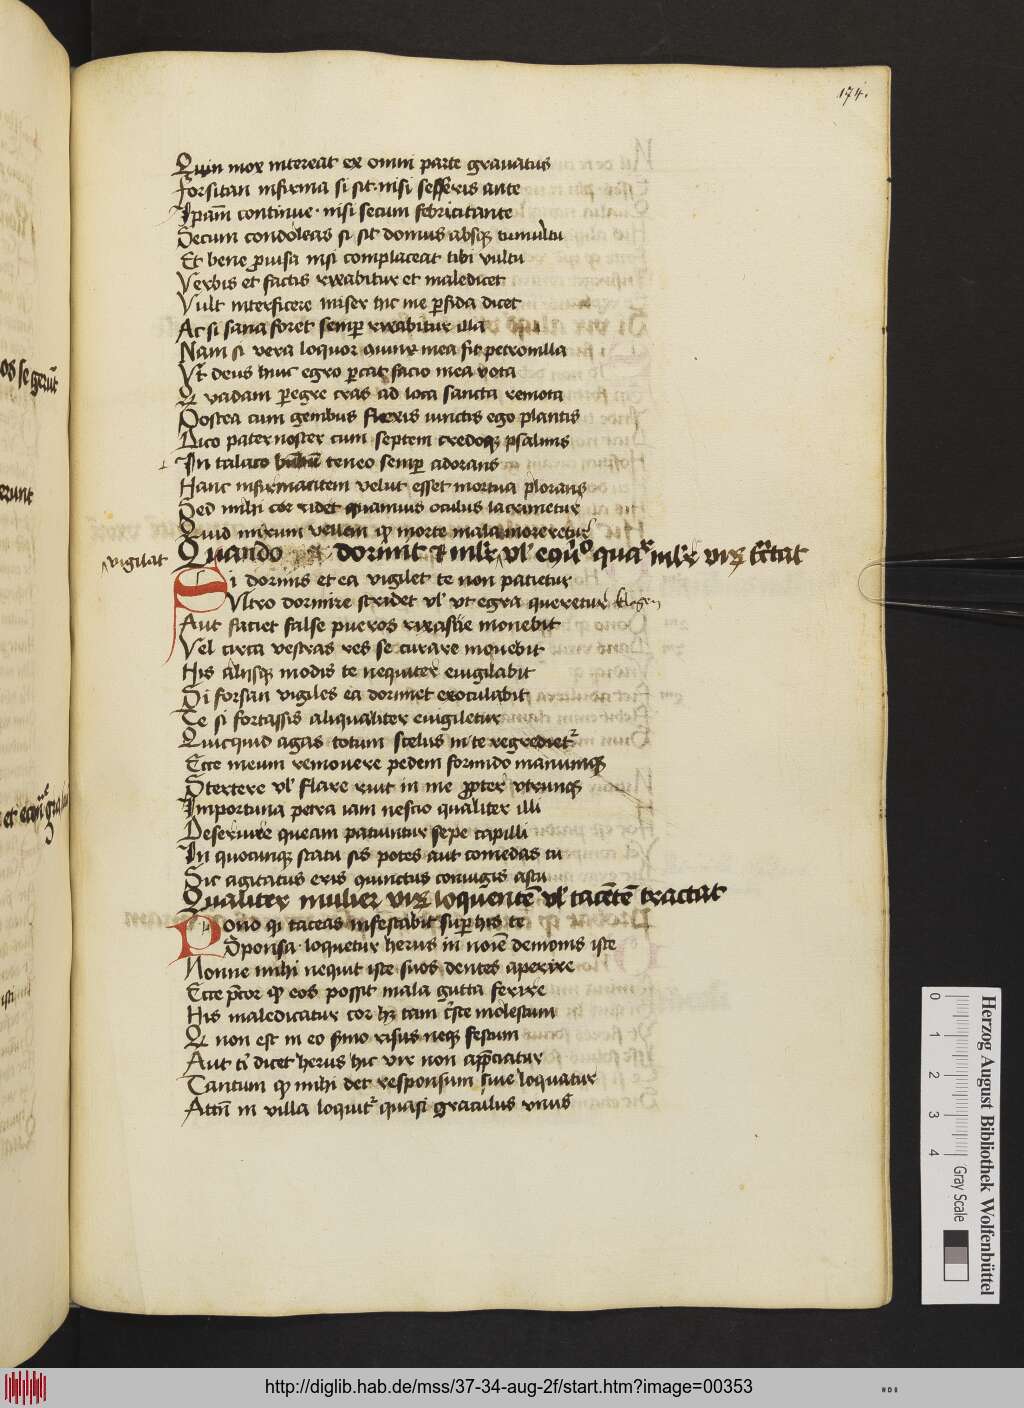 174.
Quin mox intereat ex omni parte grauatus
Forsitan infirma si sit nisi sesseris ante
Ipam̄ continue · nisi secum febricitante
Secum condoleas si sit domus absqꝫ tumultu
Et bene ꝓuisa nisi complaceat tibi vultu
Verbis et factis rixabitur et maledicet
Vult interficere miser hic me ꝑfida dicet
Ac si sana foret semꝑ rixabitur illa
Nam si vera loquor mea fit petronilla
Vt deus hinc egro ꝑcat facio mea vota
Et vadam ꝑegre cras ad loca sancta remota
Postea cum genibus flexis iunctis ego plantis
Dico pater noster cum septem credoqꝫ psalmis
In talaco teneo semꝑ adorans
Hanc infirmantem velut esset mortua plorans
Sed mihi cor ridet quamuis oculus lacrimetur
Quid mirum vellem ꝙ morte mala moreretur
vigilat
Quando dormit et mulr̄ vl̄ qualr̄ mulr̄ virū tr̄tat
Si dormis et ea vigilet te non patietur
Vltro dormire stridet vl̄ vt egra queretur klegen
Aut faciet false pueros rixasue monebit
Vel circa vestras res se curare monebit
His alijsqꝫ modis te nequiter euigilabit
Si forsan vigiles ea dormiet exoculabit
Te si fortassis aliqualiter euigiletur
Quicquid agas totum scelus in te regrediet᷑
Ecce meum remouere pedem formido manumqꝫ
Stertere vl̄ flare riuit in me ꝓpter vtrunqꝫ
Importuna petra iam nescio qualiter illi
Deseruire queam patiuntur sepe capilli
In quocunqꝫ statu sis potes aut comedas tu
Sic agitatus eris quinctus coniugis astu
Qualiter mulier virū loquentē vl̄ tacētē tractat
Pono qi taceas infestabit suꝑ his te
Sponsa · loquetur herus in noīe demonis iste
Nonne mihi nequit iste suos dentes aperire
Ecce p̄cor ꝙ eos possit mala gutta ferire
His maledicatur cor hꝫ tam tr̄ste molestum
Et non est in eo s̄mo risus neqꝫ festum
Aut tī dicet herus hic vir non app̄ciatur
Tantum ꝙ mihi det responsum siue loquatur
Attn̄ in villa loquit᷑ quasi graculus vnus
os se gerūt
erunt
Herzog August Bibliothek Wolfenbüttel
Gray Scale
0 1 2 3 4
http://diglib.hab.de/mss/37-34-aug-2f/start.htm?image=00353